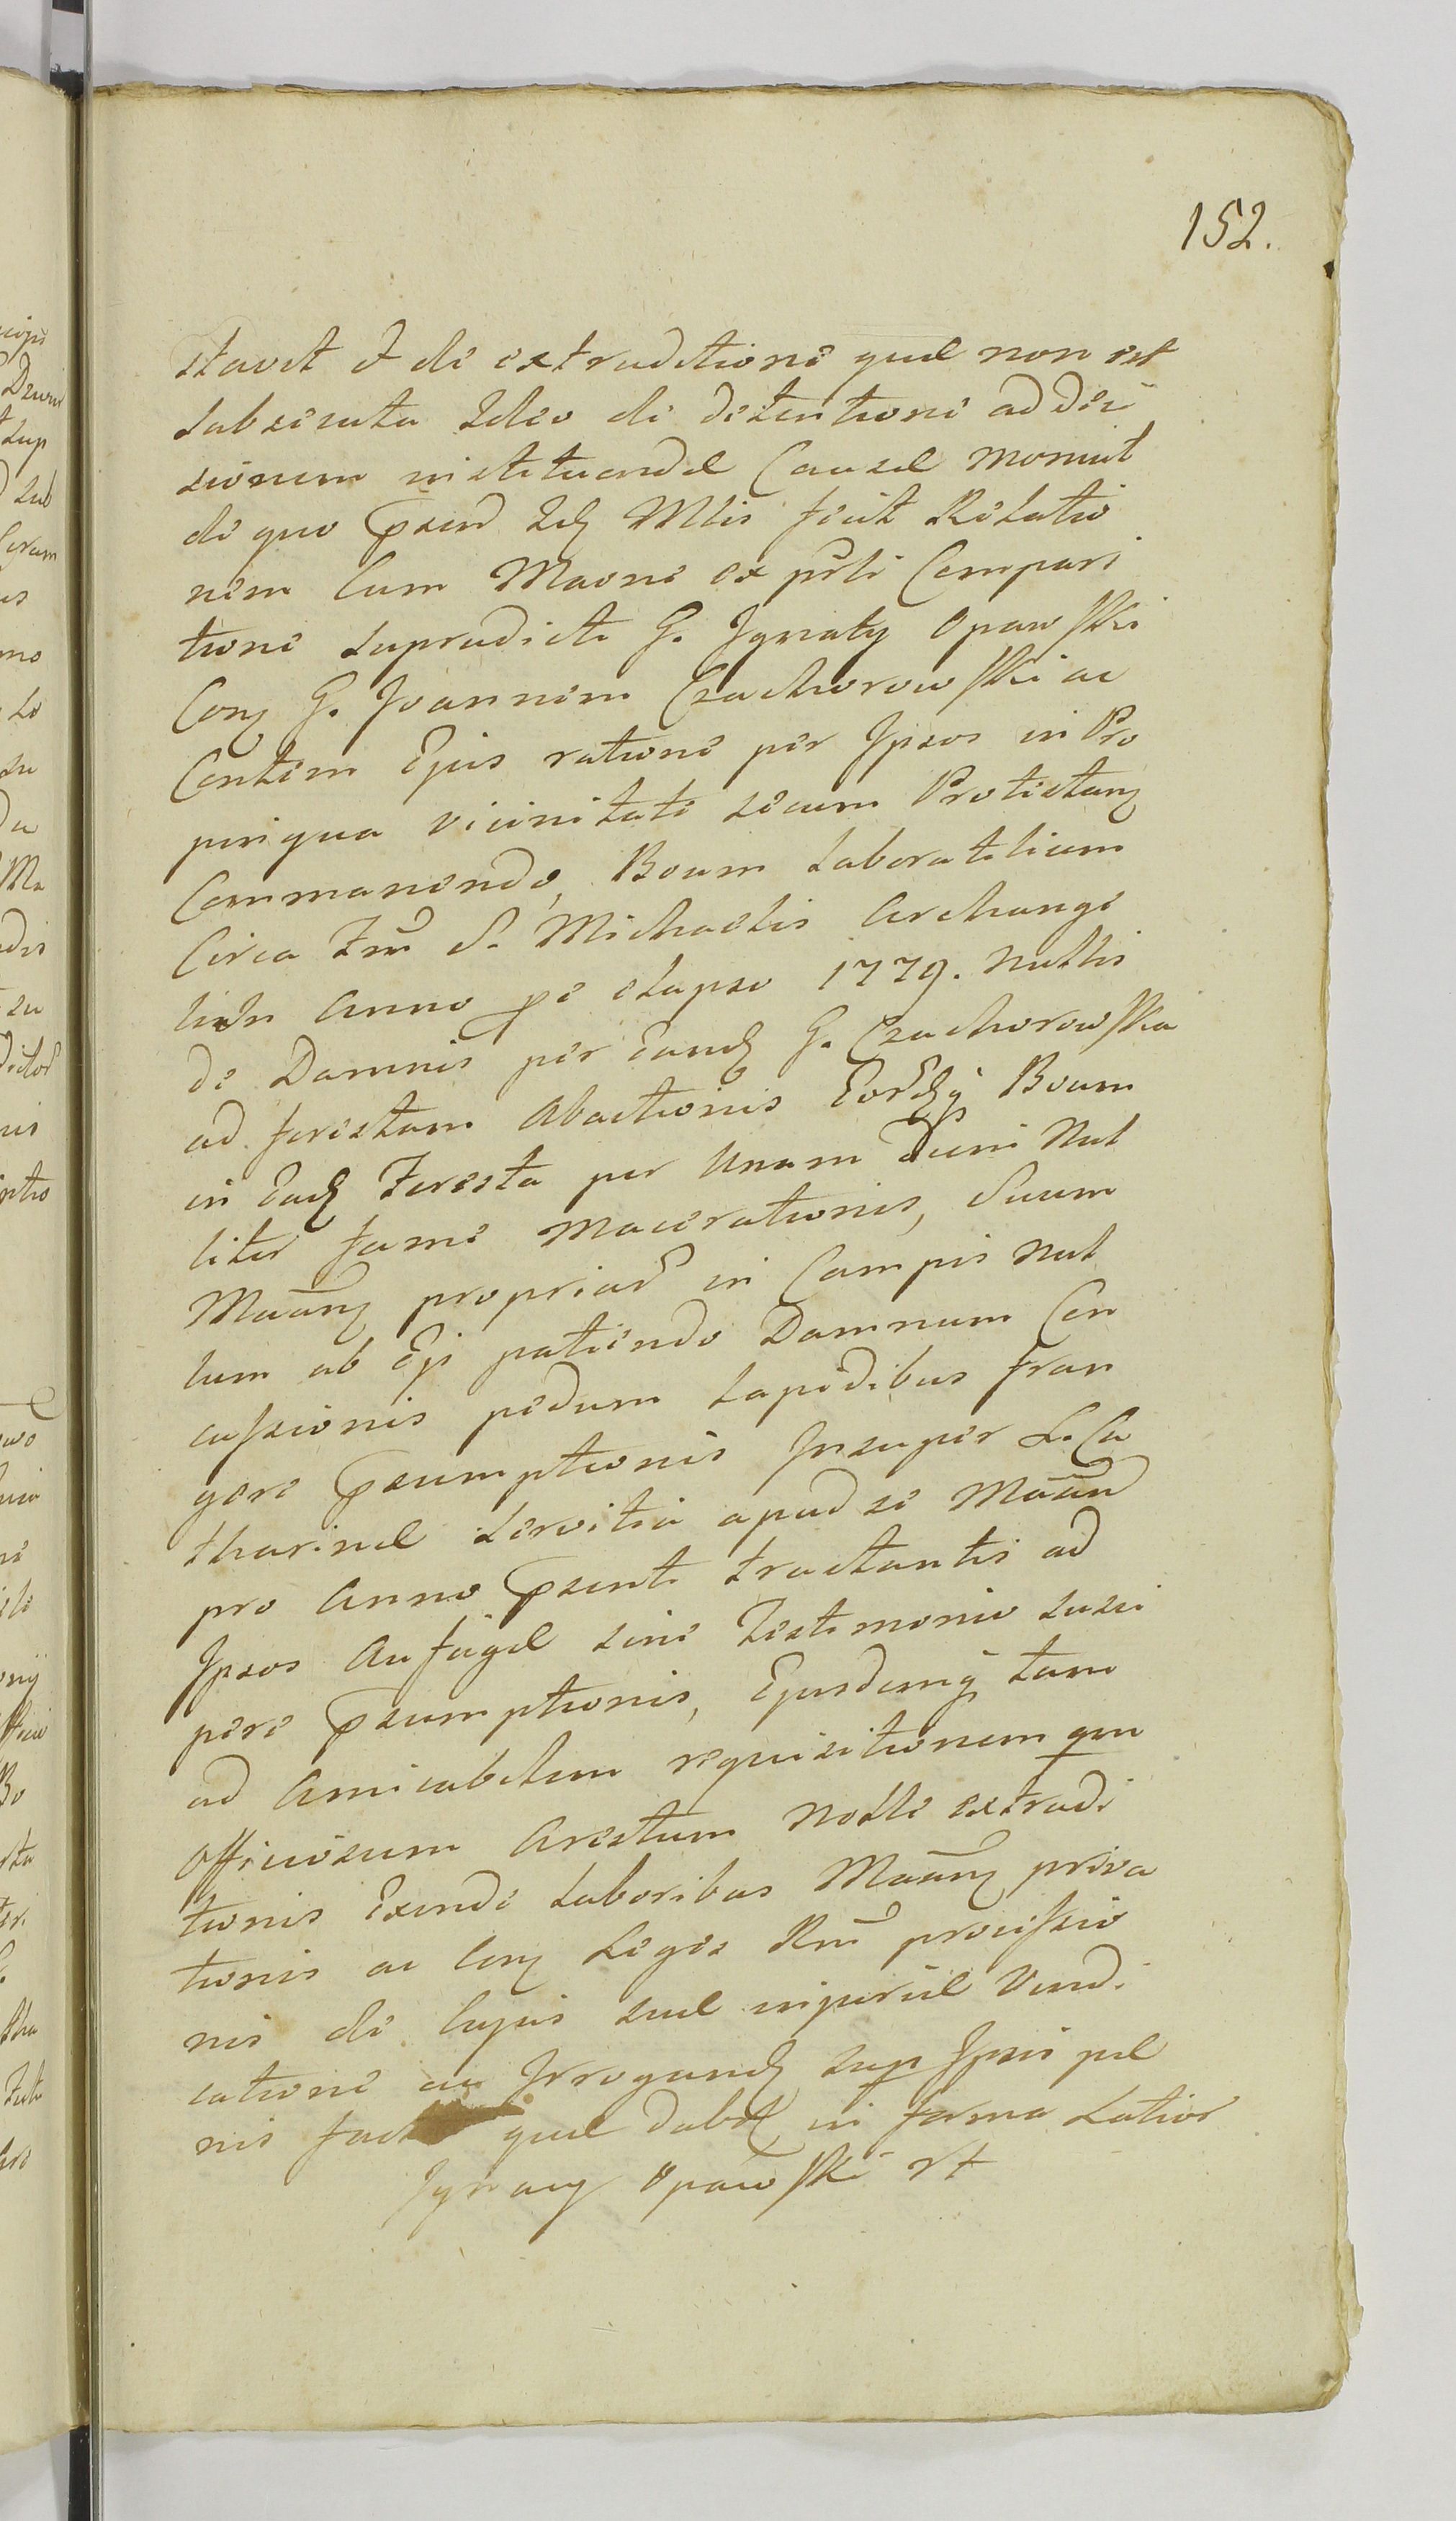 152.
stavit et de extraditione quae non est
subsecuta Ideo de detentione ad deci
sionem instituendae Causae monuit
de quo Praesens Idq Mlis fecit Relatio
nem Cum Maone ex pñti Compari
tione supradicti G. Ignatij Opawski
Conq G. Joannem Czachorowski ac
Contem Ejus ratione per Ipsos in Pro
pinqua vicinitate secum Protestanq
Commanendo, Boum laboratilium
Circa Fm̃ S. Michaelis Archange
lich Anno pe elapso 1779. nullis
de Damnis per Eandq G. Czachorowska
ad forestam Abactionis Eordqq Boum
in Eadq Foresta per Unam diem Nul
liter fame macerationis, Suum
Maãnq propriar in Campis nul
lum ab Ej patiendo Damnum Con
cussionis pedum lapidibus fran
gere Praesumptionis Insuper L. Ca
tharinae servitia apud se Maãn
pro Anno Praesenti tractantis ad
Ipsos Aufugae sine Testimonio susci
pere Praesumptionis, Ejusdemq tam
ad Amicabilem requisitionem qm
officiosum Arestum nolle extradi
tionis Exinde laboribus Maãnq priva
tionis ac Conq Leges Rm̃ processio
nis de cujus suae injuriae Vindi
catione ac Irrogandq sup Ipsis pae
nis fact quae dabit in forma latior
Ignacy Opawski rt